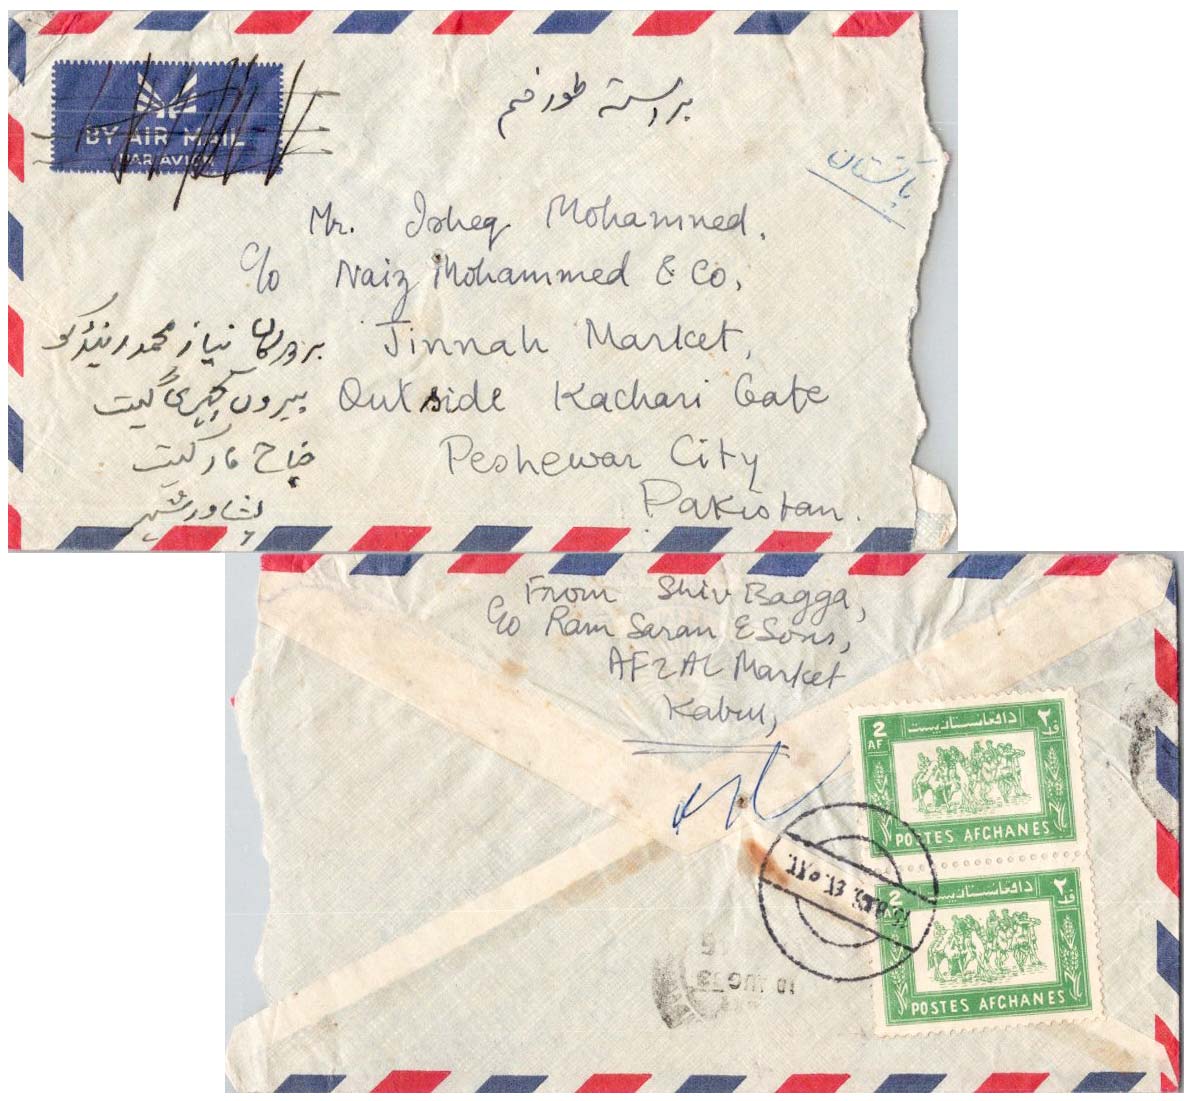 براسته طورخم
پاکستان
BY AIR MAIL
PAR AVION
Mr. Isheq Mohammed,
c/o Naiz Mohammed & Co,
Jinnah Market,
Outside Kachari Gate
Peshewar City
Pakistan.
نیاز محمد اینڈ کو
بیرون کچہری گیٹ
جناح مارکیٹ
پشاور شہر
From Shiv Bagga,
c/o Ram Saran & Sons,
AFZAL Market
Kabul,
2 AF
دافغانستان پست
٢
POSTES AFGHANES
2 AF
دافغانستان پست
٢
POSTES AFGHANES
10 AUG 73